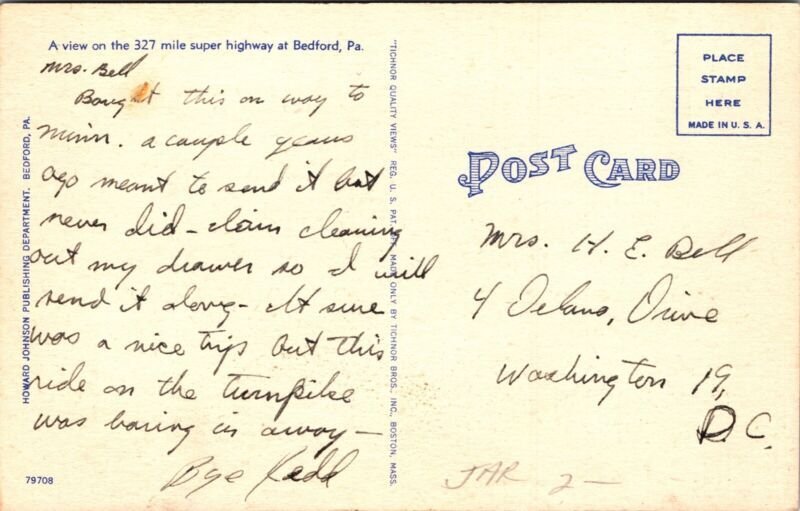 A view on the 327 mile super highway at Bedford, Pa.
Mrs. Bell
Bought this on way to
Minn. a couple years
ago meant to send it but
never did - claim cleaning
out my drawer so I will
send it along - It sure
was a nice trip but this
ride on the turnpike
was boring in away -
Bye Kedd
79708
HOWARD JOHNSON PUBLISHING DEPARTMENT. BEDFORD, PA.
"TICHNOR QUALITY VIEWS" REG. U. S. PAT. OFF. MADE ONLY BY TICHNOR BROS. INC., BOSTON, MASS.
PLACE
STAMP
HERE
MADE IN U. S. A.
POST CARD
Mrs. H. E. Bell
4 Delano, Drive
Washington 19,
D.C.
JAR 2-